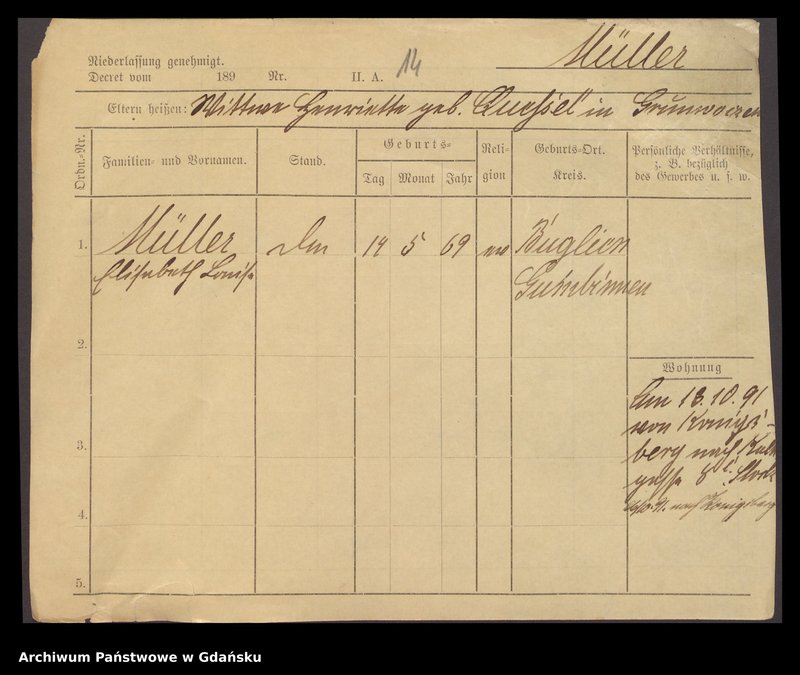 Niederlassung genehmigt.
Müller
Decret vom 189 Nr. II. A. 14
Eltern heißen: Wittwe Henriette geb. Quessel in
Ordn.-Nr.
Familien- und Vornamen.
Stand.
Geburts-
Tag Monat Jahr
Reli-
gion
Geburts-Ort.
Kreis.
Persönliche Verhältnisse,
z. B. bezüglich
des Gewerbes u. s. w.
1. Müller 5 69 ev Buglien
Elisabeth Louise Gumbinnen
2.
Wohnung
Am 13.10.91
von Königs-
3. berg nach
gasse 8
4. nach Königsberg
5.
Archiwum Państwowe w Gdańsku